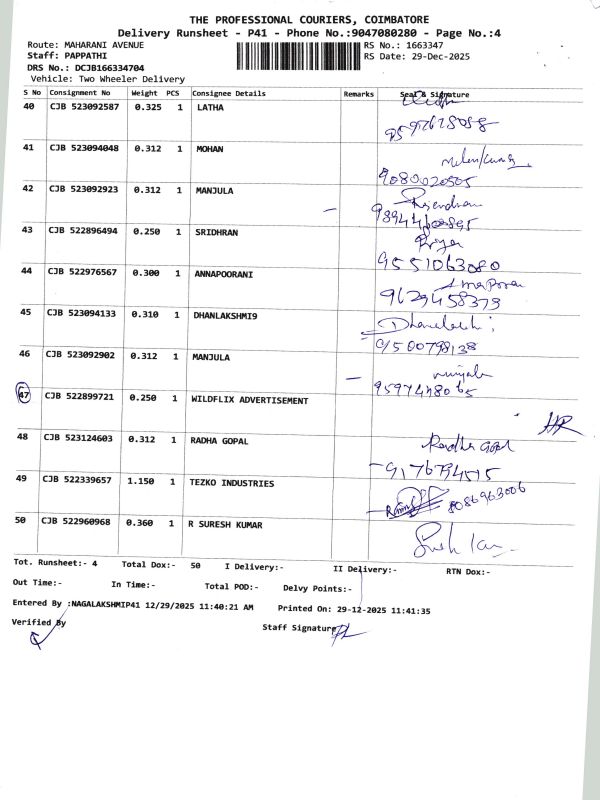 THE PROFESSIONAL COURIERS, COIMBATORE
Delivery Runsheet - P41 - Phone No.:9047080280 - Page No.:4
Route: MAHARANI AVENUE RS No.: 1663347
Staff: PAPPATHI RS Date: 29-Dec-2025
DRS No.: DCJB166334704
Vehicle: Two Wheeler Delivery
S No Consignment No Weight PCS Consignee Details Remarks Seal & Signature
40 CJB 523092587 0.325 1 LATHA
41 CJB 523094048 0.312 1 MOHAN
9080020505
42 CJB 523092923 0.312 1 MANJULA
Rajendran
43 CJB 522896494 0.250 1 SRIDHRAN
Priya
9551063080
44 CJB 522976567 0.300 1 ANNAPOORANI
9629458373
45 CJB 523094133 0.310 1 DHANLAKSHMI9
46 CJB 523092902 0.312 1 MANJULA
47 CJB 522899721 0.250 1 WILDFLIX ADVERTISEMENT
48 CJB 523124603 0.312 1 RADHA GOPAL
Radha Gopal
49 CJB 522339657 1.150 1 TEZKO INDUSTRIES
8086963006
50 CJB 522960968 0.360 1 R SURESH KUMAR
Tot. Runsheet:- 4 Total Dox:- 50 I Delivery:- II Delivery:- RTN Dox:-
Out Time:- In Time:- Total POD:- Delvy Points:-
Entered By :NAGALAKSHMIP41 12/29/2025 11:40:21 AM Printed On: 29-12-2025 11:41:35
Verified By Staff Signature